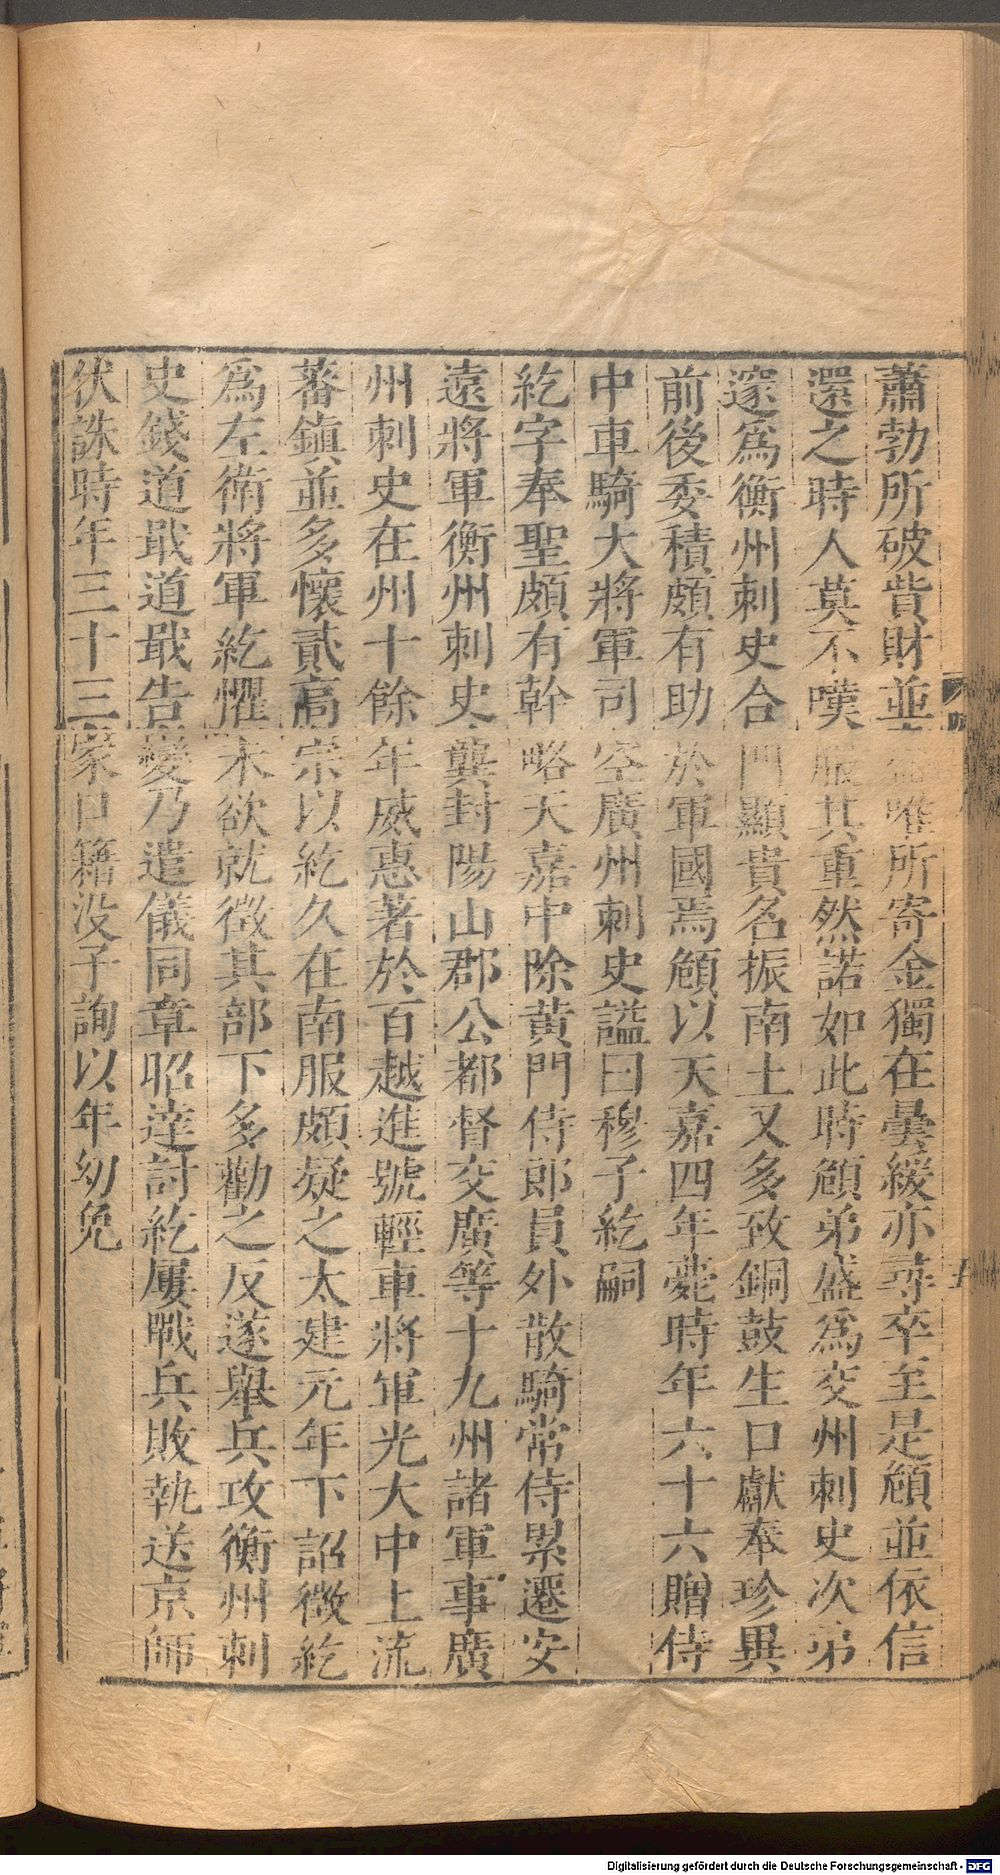 蕭勃所破貲財並盡唯所寄金獨在曇緩亦尋卒至是頠並依信
還之時人莫不嘆服其重然諾如此時頠弟盛爲交州刺史次弟
邃爲衡州刺史合門顯貴名振南土又多致銅鼓生口獻奉珍異
前後委積頗有助於軍國焉頠以天嘉四年薨時年六十六贈侍
中車騎大將軍司空廣州刺史謚曰穆子紇嗣
紇字奉聖頗有幹略天嘉中除黃門侍郎員外散騎常侍累遷安
遠將軍衡州刺史襲封陽山郡公都督交廣等十九州諸軍事廣
州刺史在州十餘年威惠著於百越進號輕車將軍光大中上流
蕃鎮並多懷貳高宗以紇久在南服頗疑之太建元年下詔徴紇
爲左衛將軍紇懼未欲就徴其部下多勸之反遂舉兵攻衡州刺
史錢道戢道戢告變乃遣儀同章昭達討紇屢戰兵敗執送京師
伏誅時年三十三家口籍没子詢以年幼免
Digitalisierung gefördert durch die Deutsche Forschungsgemeinschaft - DFG